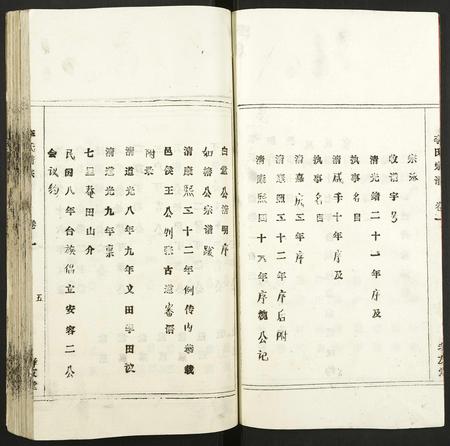 宗派
收譜字号
清光緒二十一年序及
執事名目
清咸丰十年序及
執事名目
清嘉庆三年序
清康熙五十二年序后附
清康熙四十六年序槐公记
白堂公清明序
如榜公宗谱跋
清康熙三十二年例传内补载
邑侯王公判张古道審语
附录
清道光八年九年文田学田议
清道光九年禀
七里庵田山介
民国八年台族倡立安容二公
会议约
李氏宗谱
卷一
五